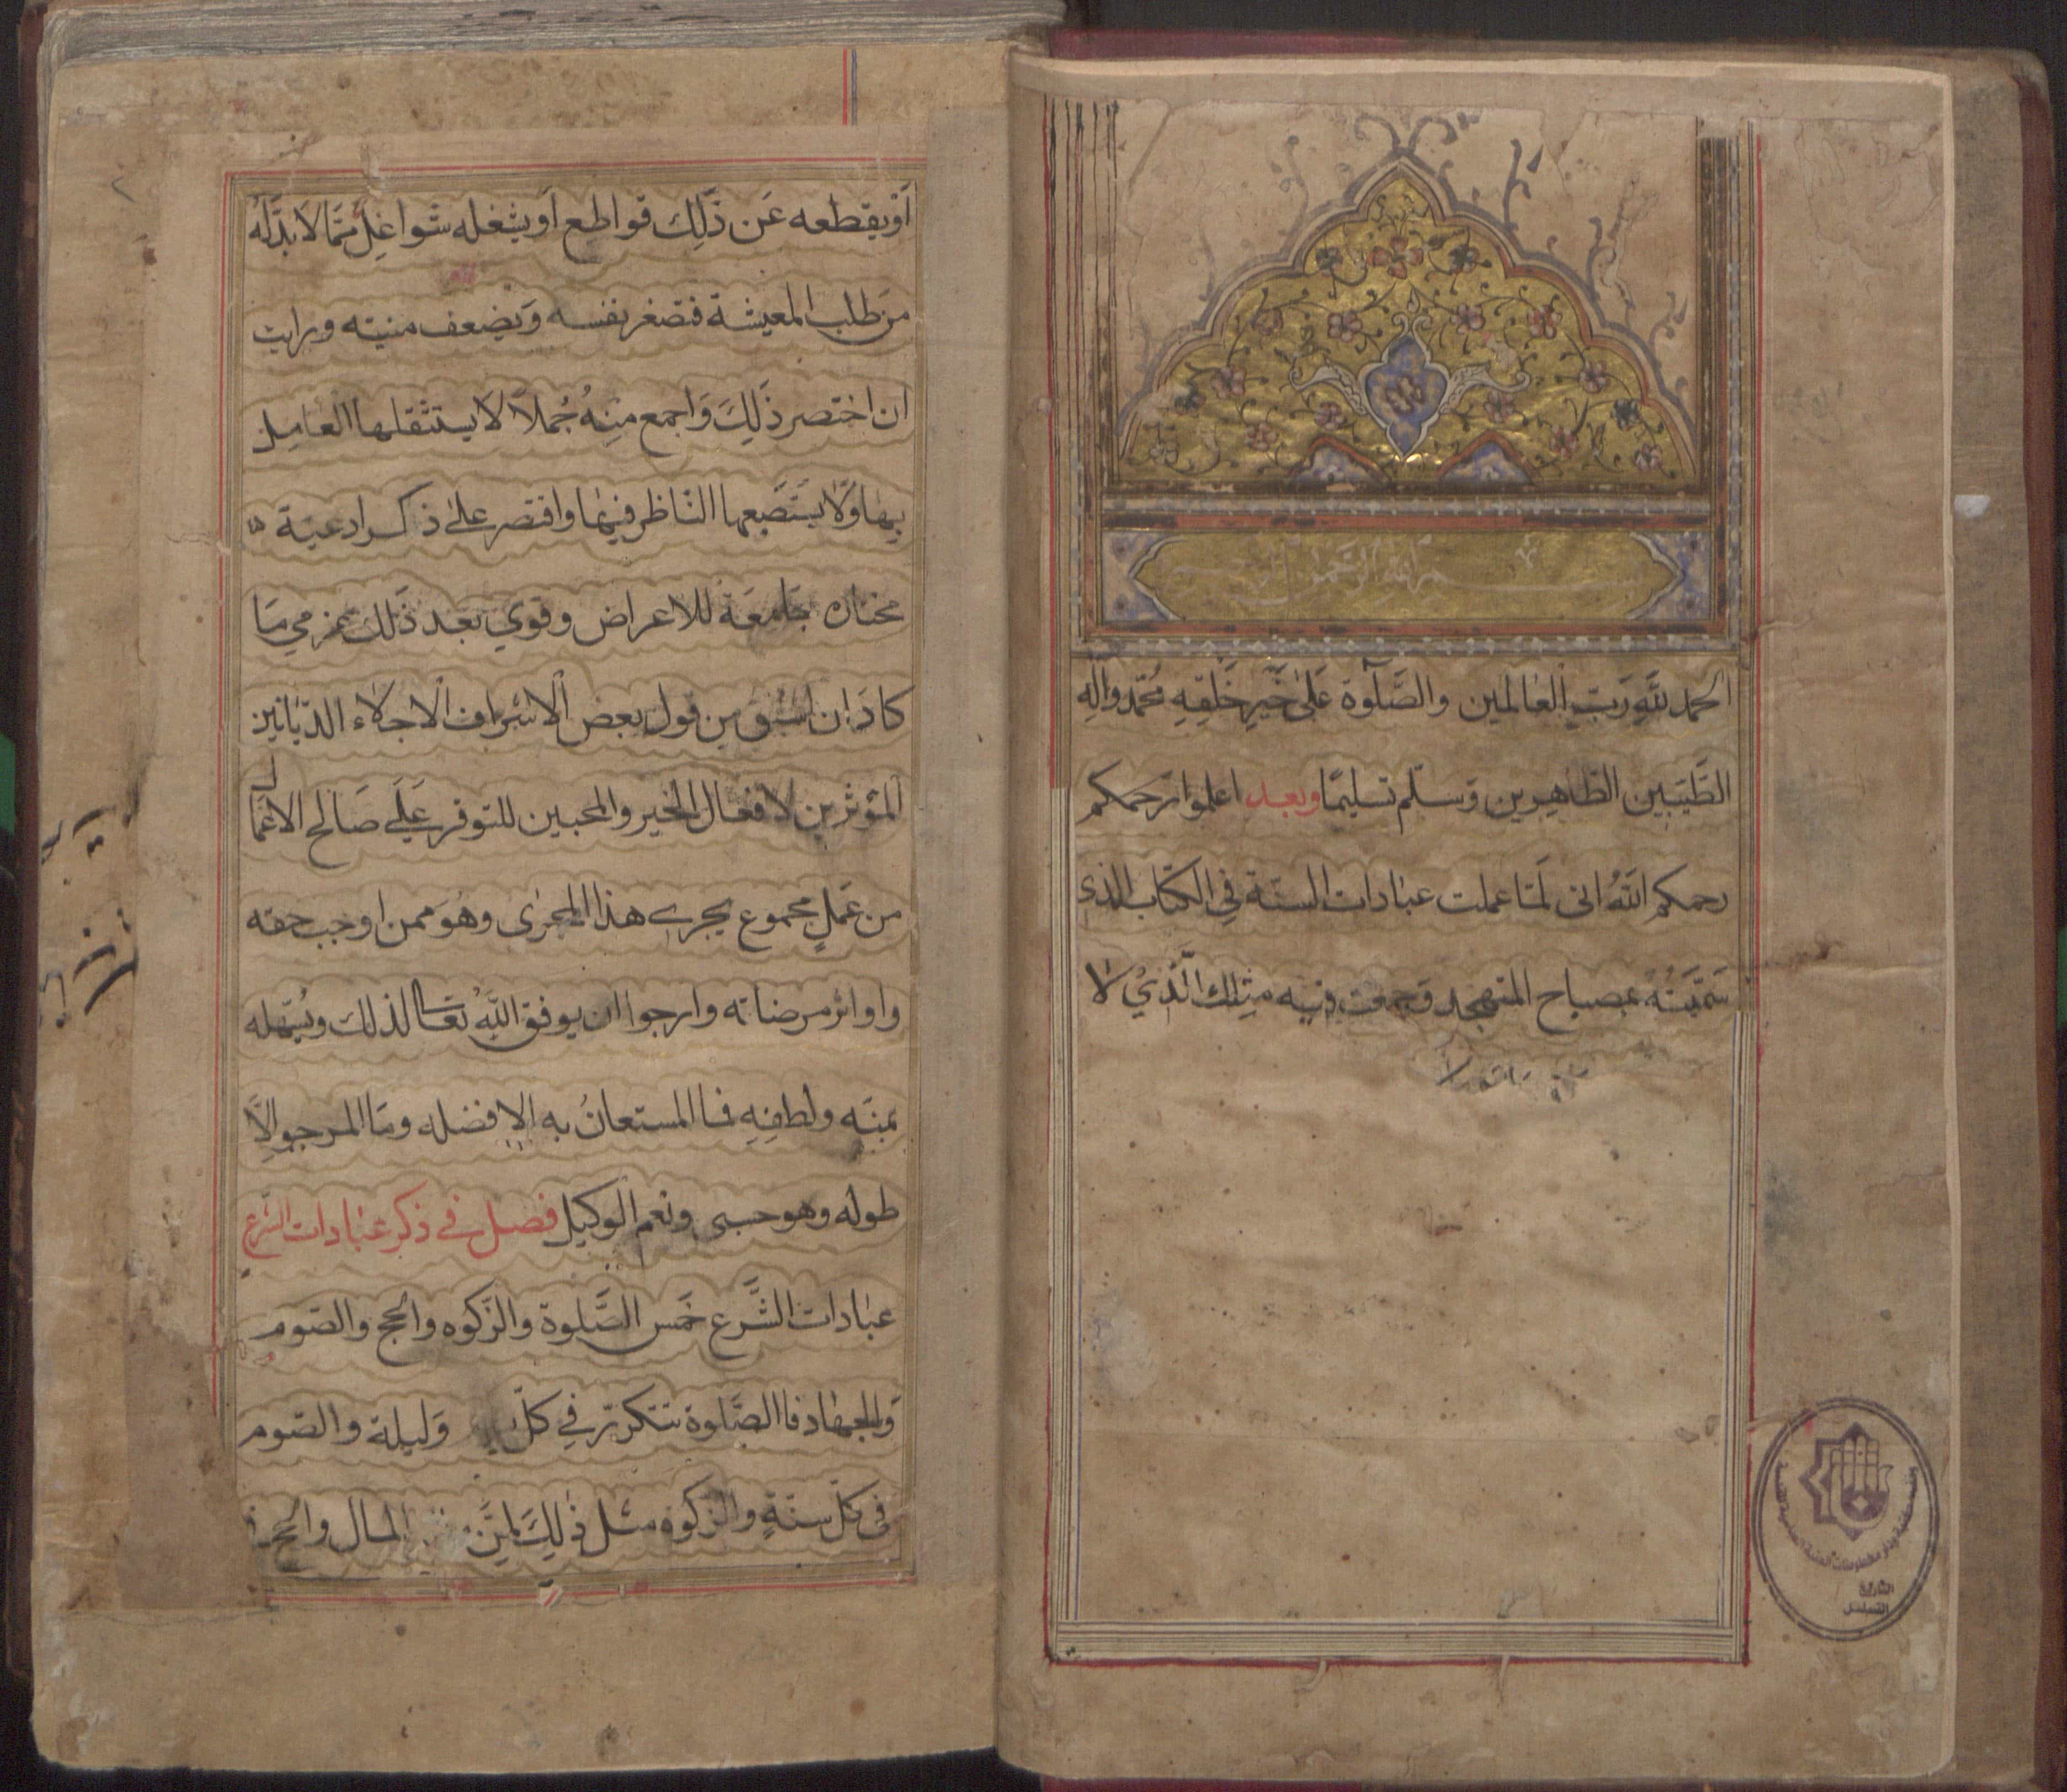 بسم الله الرحمن الرحيم
الحمد لله رَبِّ العالمين والصَّلوة عَلىٰ خَيرِ خَلقِهِ محمّد وآلِهِ
الطَّيّبين الطّاهِرين وَسلّم تسليمًا وبعد اعلموا يرحمكم
رحمكم اللهُ انى لَمّا عملت عبادات السنة فِي الكتاب الذى
سَمَّيتهُ بمصباح المتهجد وَجمعت فيه مثِلك الَّذيُ لا
أوْيقطعه عَن ذٰلِك قواطِع أو يشغله شواغِلُ ممّا لَا بدَّ لَهُ
من طلب المعيشة فتصغر نفسه وَيضعف منيته ورايت
ان اختصر ذٰلِكَ وَاجمع منِهُ جُملاً لا يستثقلها العامِل
بِها وَلا يَستَصعبها النّاظر فيها واقتصر على ذكر ادعية
مختاره جَامِعَة للاعراض وقوي بَعد ذٰلك عزمي مَا
كادَ ان استٰقى من قول بعض الاشراف الاجلاء الديّانين
المُؤثرين لافعال الخير والمحبين للتوفر عَلَى صَالح الاعمال
من عَملٍ مجموع يجرى هذا المجرٰى وهُوَ ممن اوجب حقه
واواثر مرضاته وارجوا ان يوفق اللهُ تعَالىٰ لذلك ويُسَهله
بمنّه ولطفِهِ فما المستعانُ به الا فضله ومَا المرجو الّا
طوله وهو حسبى ونعم الوكيل فصل فى ذكر عبَادات الشرع
عبادات الشَّرع خمَس الصَّلوة والزّكوه والحج والصّوم
وَالجهاد فا الصّلوة تتكرّر فِي كلّ وَليلة والصّوم
فى كلّ سنةٍ والزكوة مثل ذٰلِكَ لمَن المال والحج